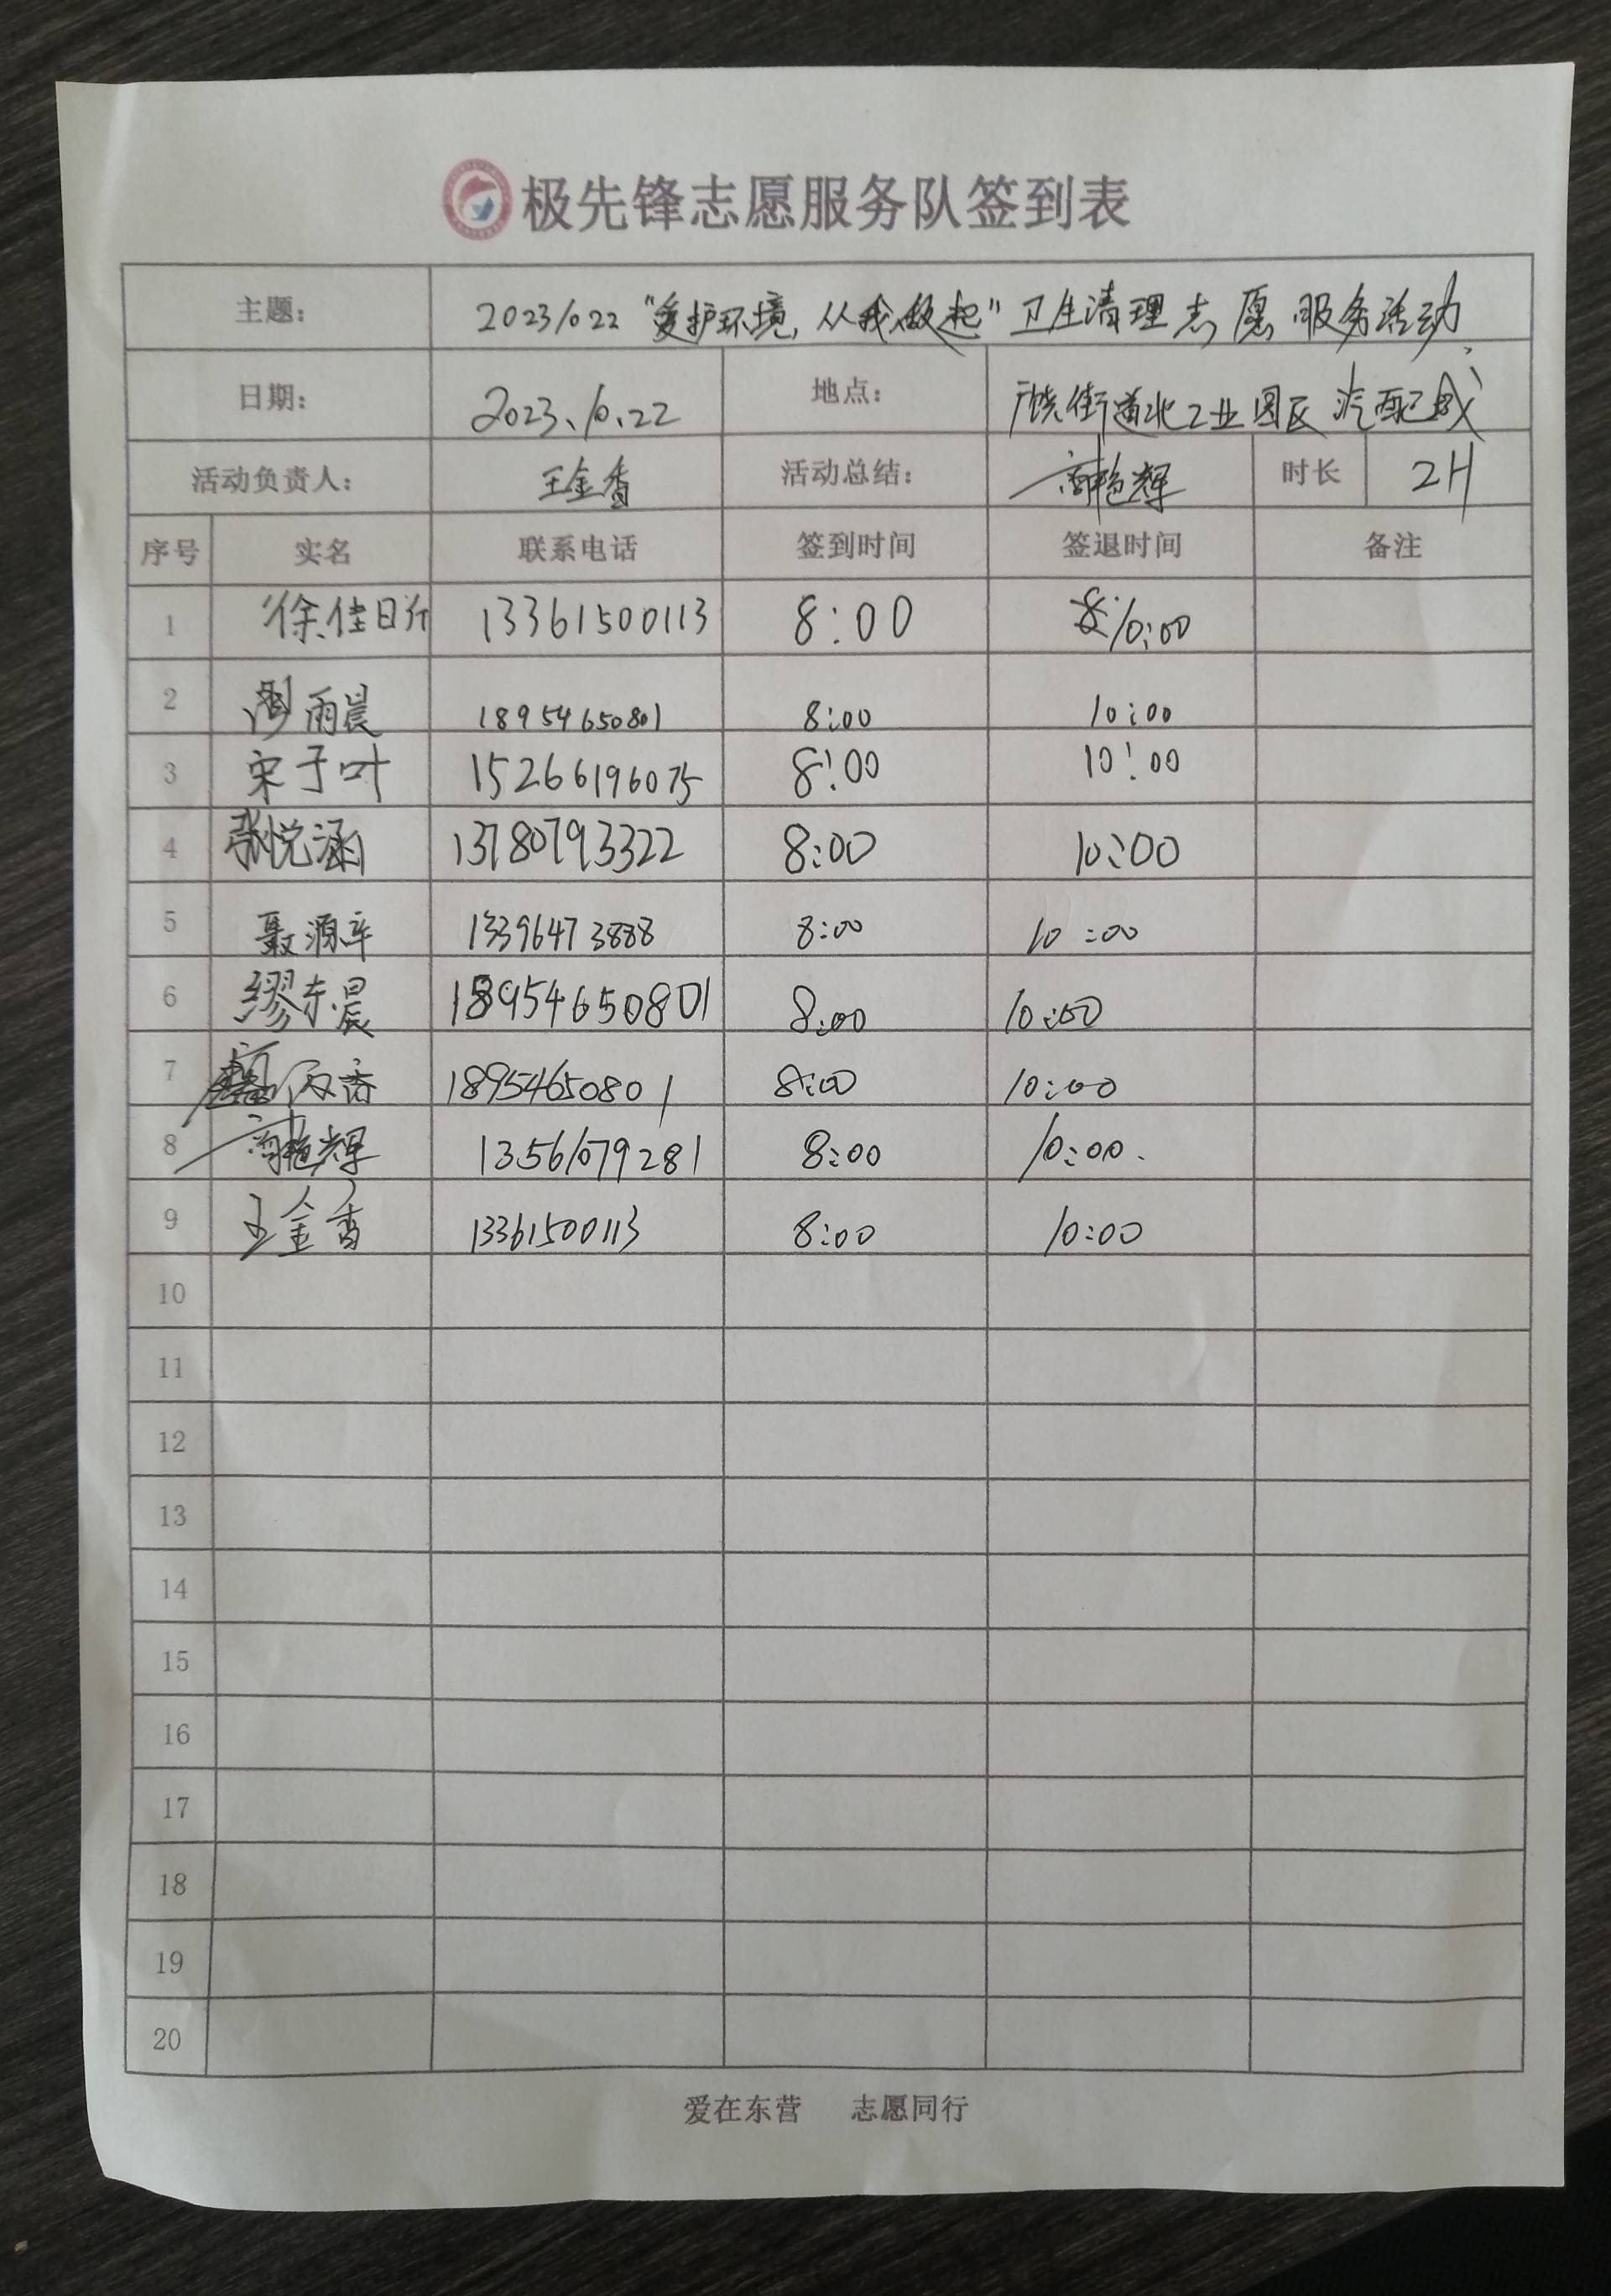 极先锋志愿服务队签到表
主题： 20231022“爱护环境，从我做起”卫生清理志愿服务活动
日期： 2023.10.22 地点： 广饶街道北工业园区汽配城
活动负责人： 王金香 活动总结： 商艳辉 时长 2H
序号 实名 联系电话 签到时间 签退时间 备注
1 徐佳昕 13361500113 8:00 10:00
2 雨晨 18954650801 8:00 10:00
3 宋子叶 15266196075 8:00 10:00
4 张悦涵 13780793322 8:00 10:00
5 聂源 13396473888 8:00 10:00
6 缪东晨 18954650801 8:00 10:00
7 18954650801 8:00 10:00
8 商艳辉 13561079281 8:00 10:00.
9 王金香 13361500113 8:00 10:00
10
11
12
13
14
15
16
17
18
19
20
爱在东营 志愿同行